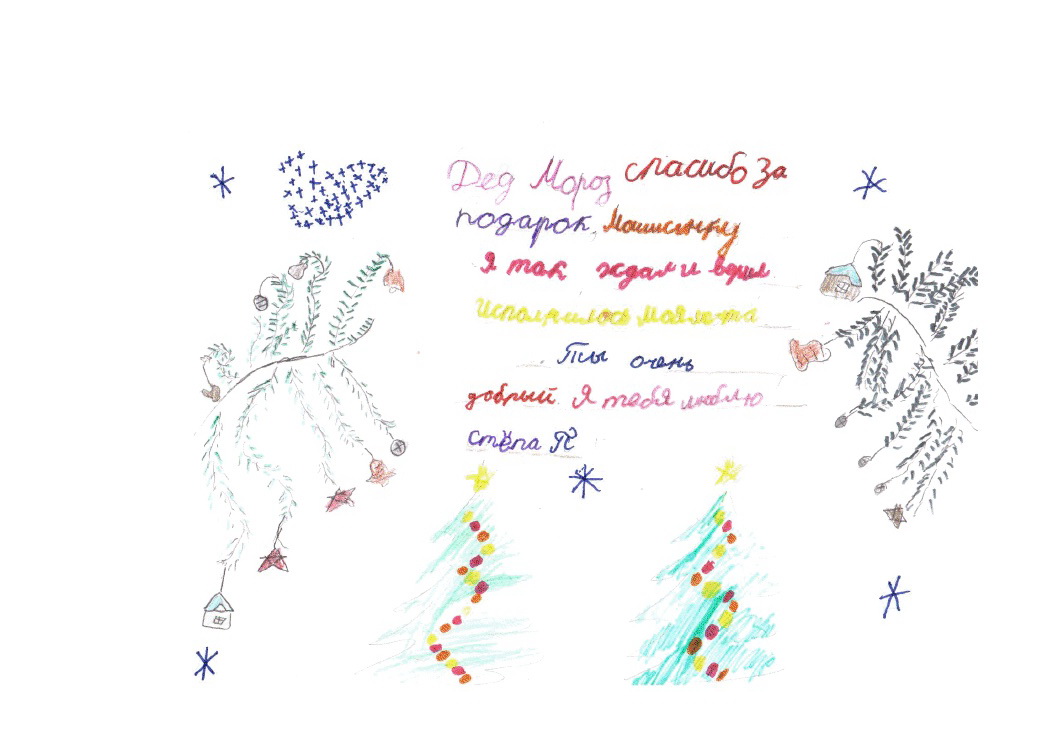 Дед Мороз спасибо за
подарок, Машинку
Я так ждал и верил
Исполнилось моя мечта
Ты очень
добрый Я тебя люблю
Стёпа П